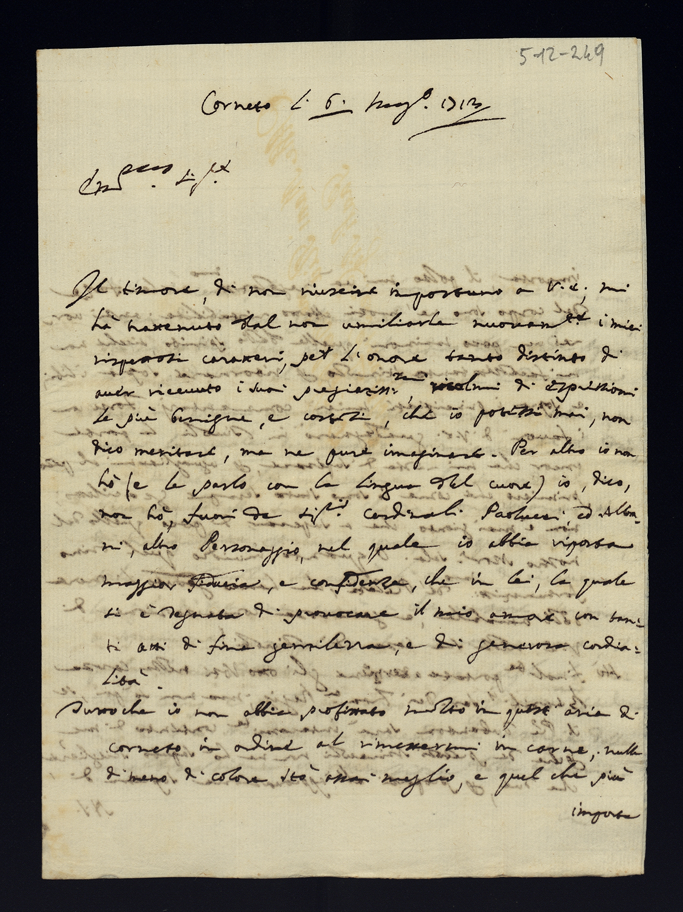 5-12-249
Corneto li 6. Mag.o 1713
Il timore, di non riuscire importuno a V.E., mi
hà trattenuto dal non umiliarle nuovam.te i miei
rispettosi caratteri, per l'onore tanto distinto di
aver ricevuto i suoi pregiatiss.mi, ricolmi di espressioni
le più benigne, e cortesi, che io potessi mai, non
dico meritare, ma ne pure imaginare. Per altro io non
hò (e le parlo con la lingua del cuore) io, dico,
non hò, fuori de Sig.ri Cardinali Paolucci, ed Alba-
ni, altro Personaggio, nel quale io abbia riposta
maggior stima, e confidenza, che in lei, la quale
si è degnata di provocare il mio amore con tan-
ti atti di fina gentilezza, e di generosa cordia-
lità.
Tutto che io non abbia profittato molto in quest'aria di
Corneto in ordine al rimettermi in carne, nulla
di meno di colore stò assai meglio, e quel che più
importa